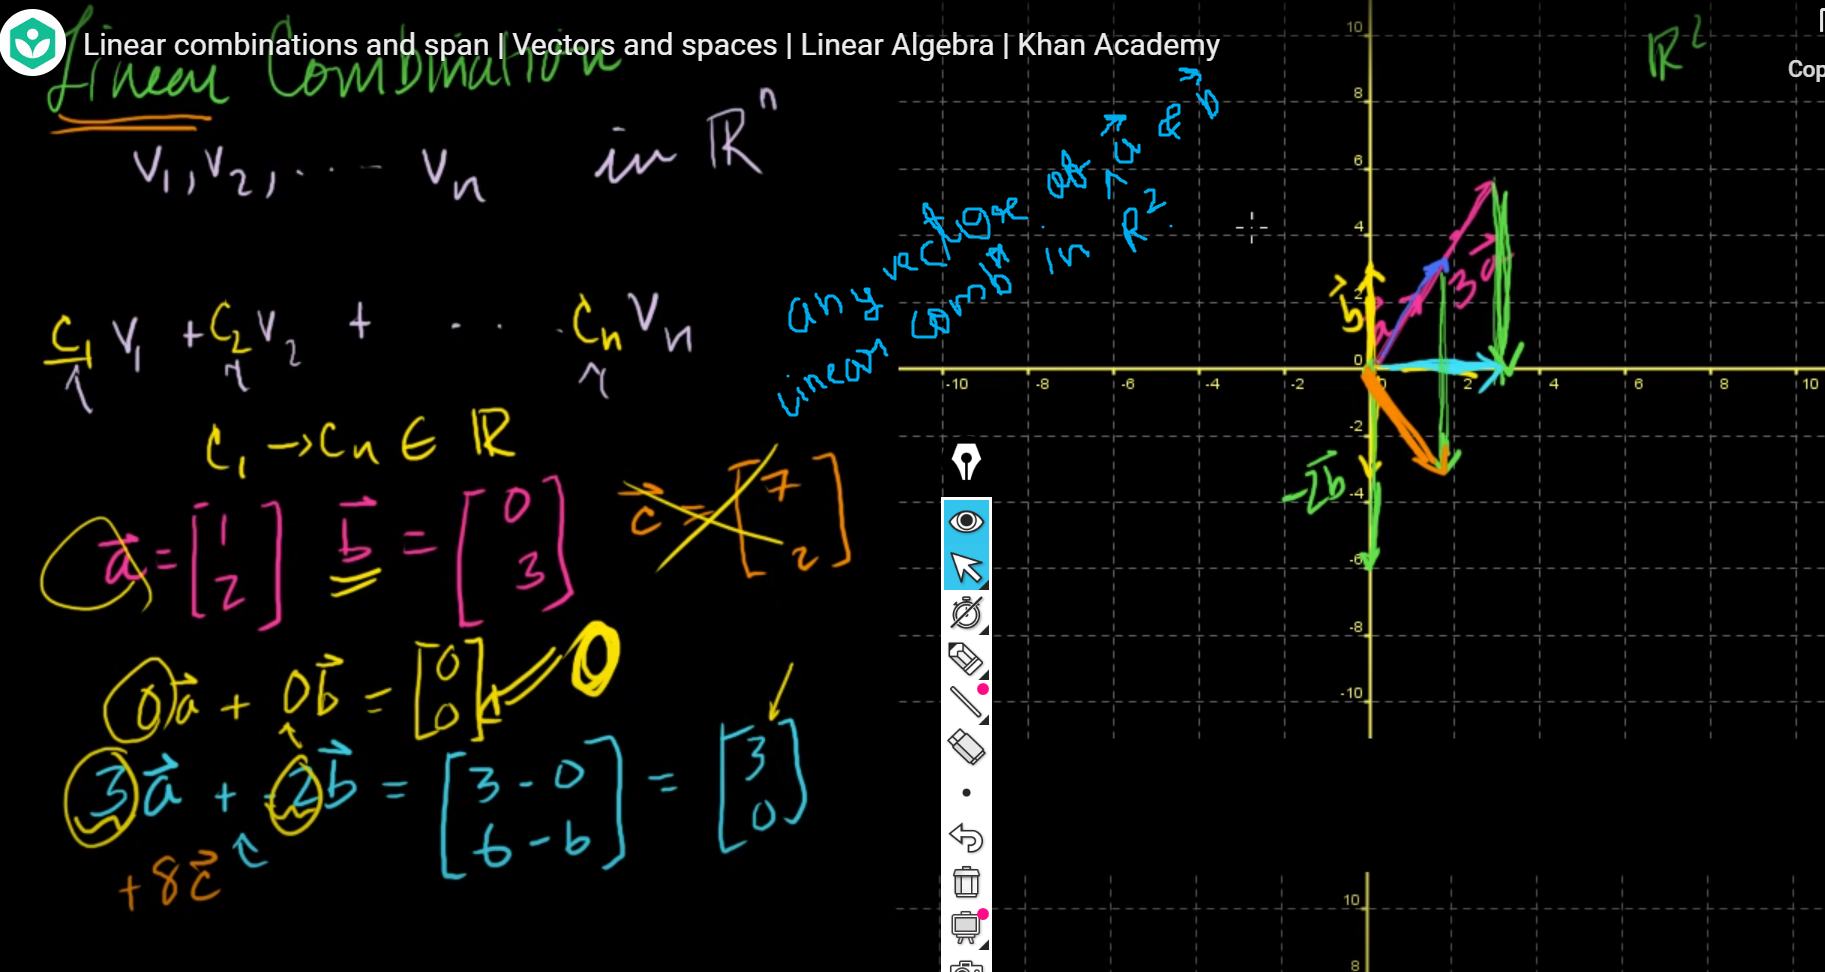 Linear combinations and span | Vectors and spaces | Linear Algebra | Khan Academy
Cop
Linear Combination
V₁, V₂, . . . - Vn in ℝⁿ
C₁V₁ + C₂V₂ + . . . CnVn
C₁ → Cn ∈ ℝ
a⃗ = [1 2] b⃗ = [0 3] c⃗ = [7 2]
0a⃗ + 0b⃗ = [0 0] 0
3a⃗ + -2b⃗ = [3 - 0 6 - 6] = [3 0]
+ 8c⃗
any vector of a⃗ & b⃗
Linear combⁿ in R²
ℝ²
10
8
6
4
2
0
-10 -8 -6 -4 -2 0 2 4 6 8 10
-2
-4
-6
-8
-10
b⃗
a
3a⃗
-2b⃗
10
8